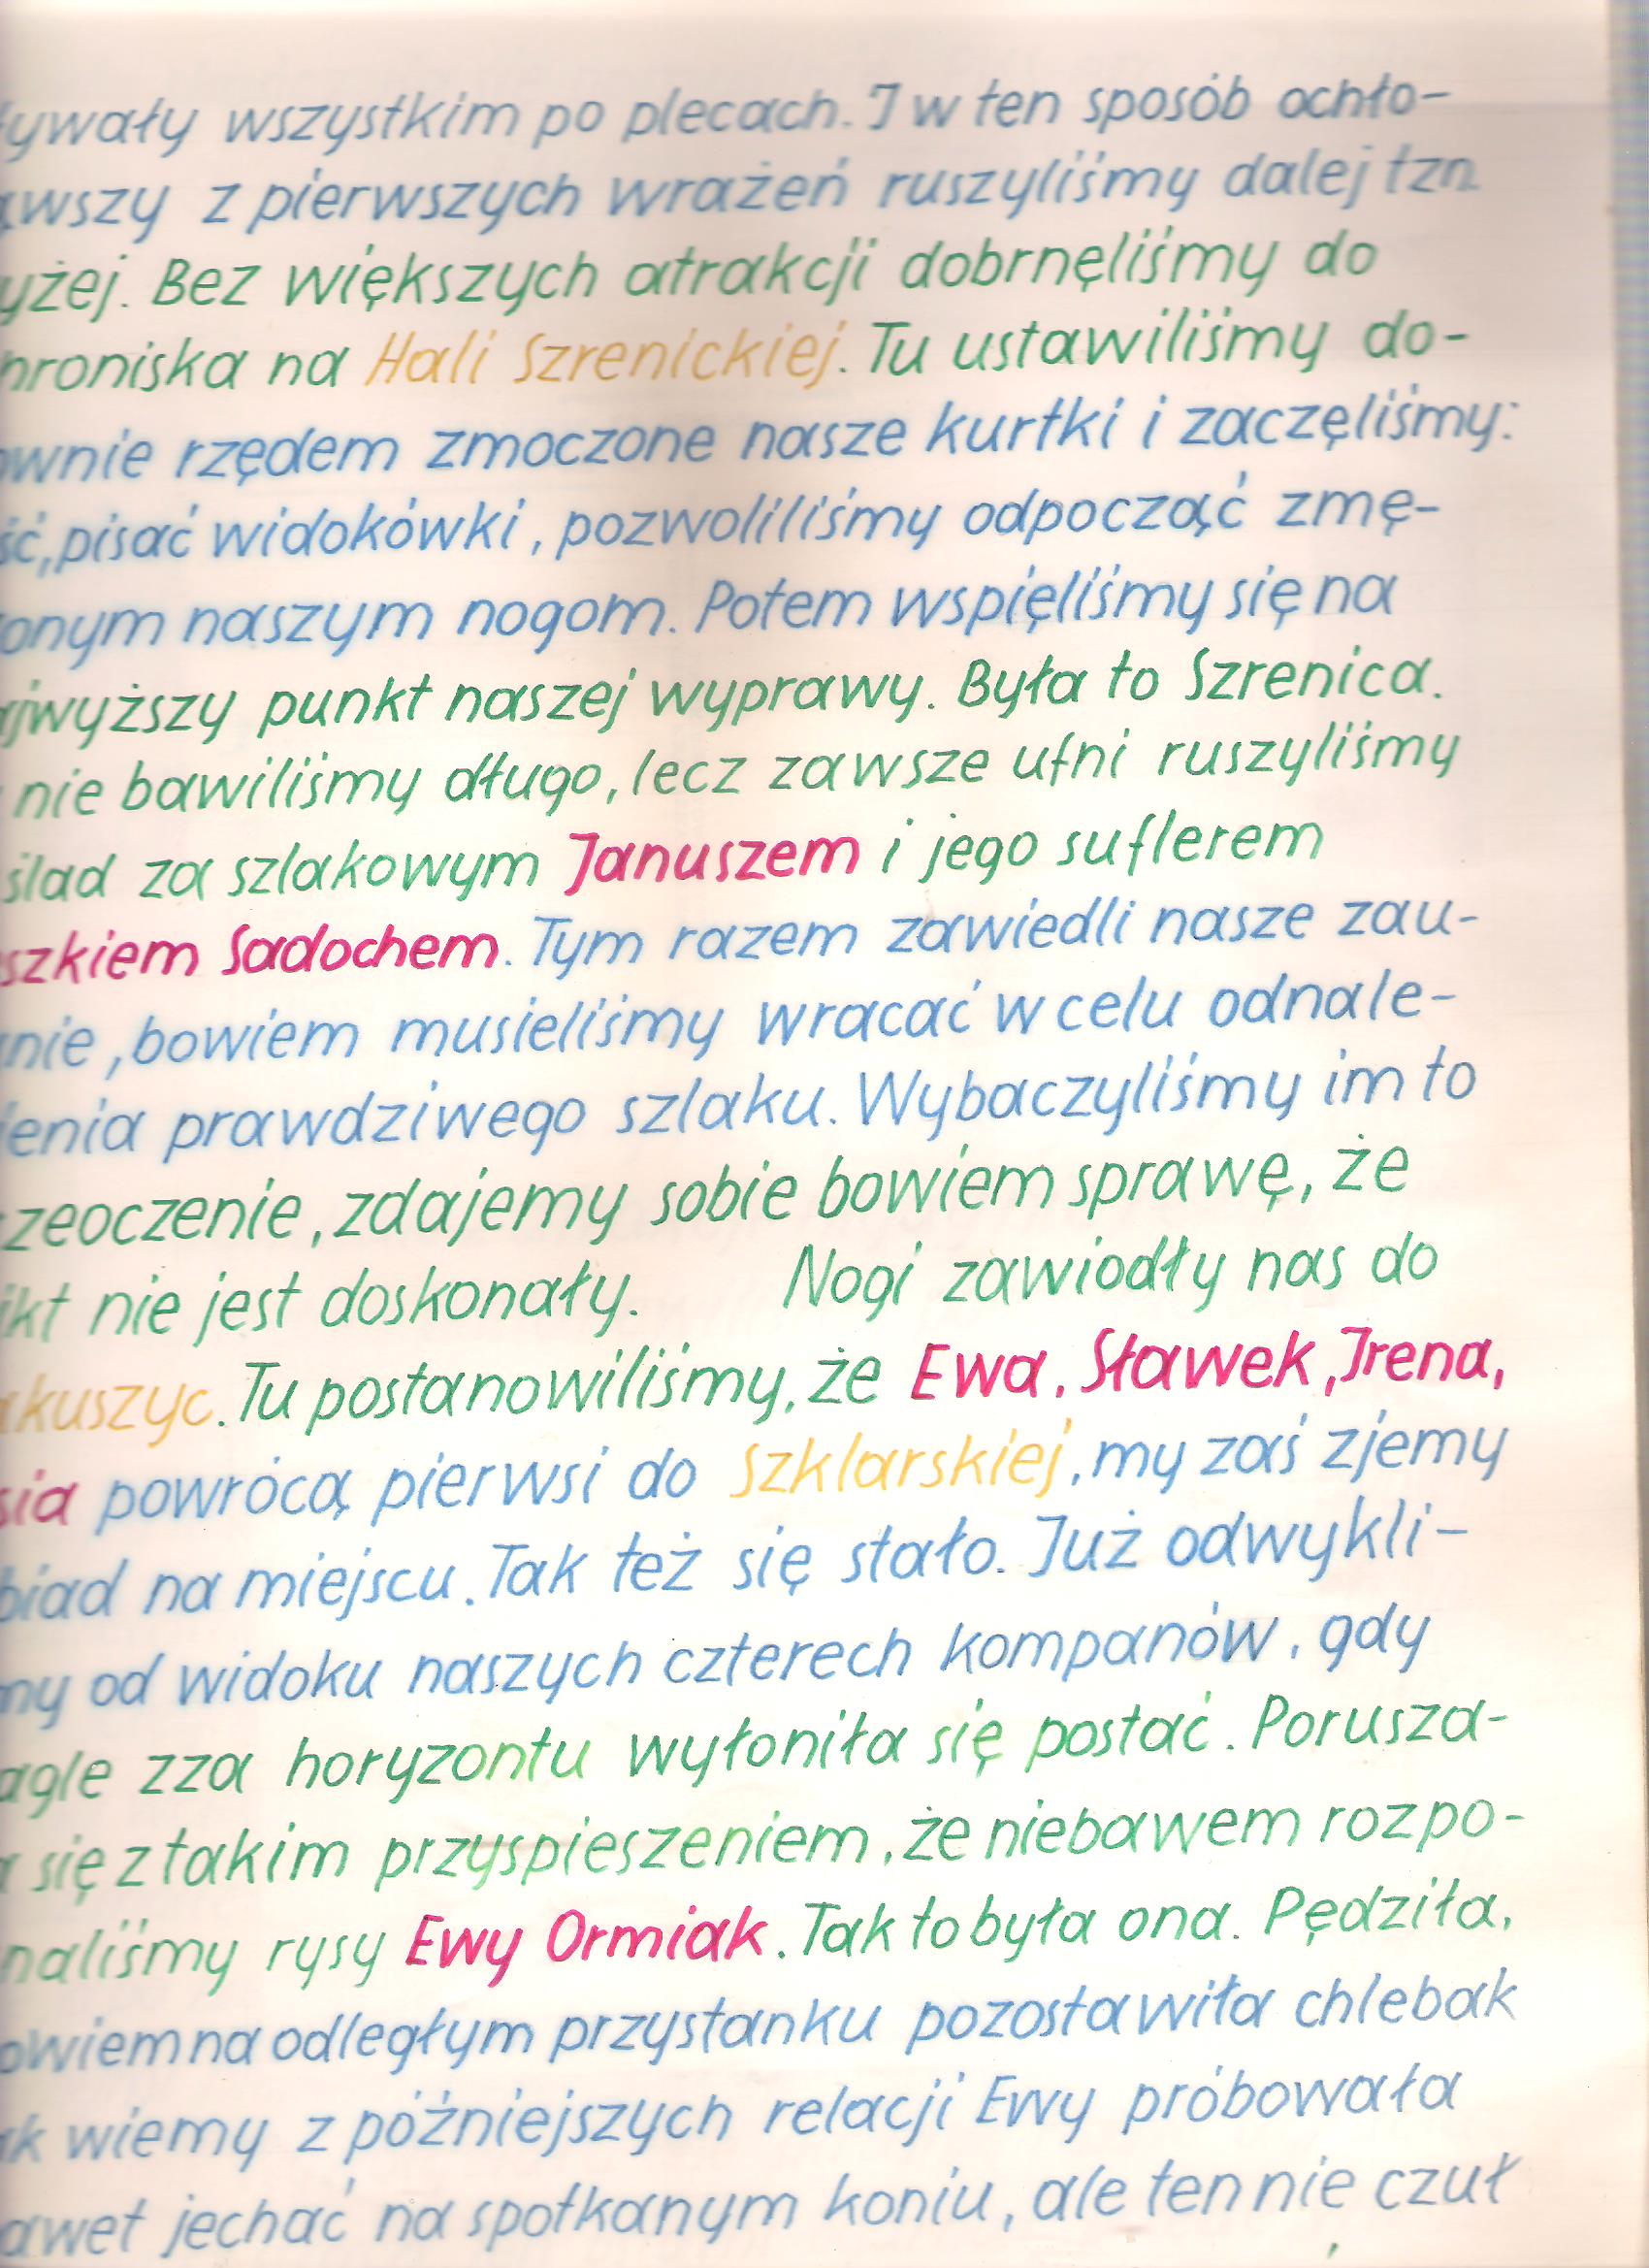 ywały wszystkim po plecach. I w ten sposób ochło-
wszy z pierwszych wrażeń ruszyliśmy dalej tzn
yżej. Bez większych atrakcji dobrnęliśmy do
hroniska na Hali Szrenickiej. Tu ustawiliśmy do-
ownie rzędem zmoczone nasze kurtki i zaczęliśmy:
ść, pisać widokówki, pozwoliliśmy odpocząć zmę-
onym naszym nogom. Potem wspięliśmy się na
ajwyższy punkt naszej wyprawy. Była to Szrenica.
nie bawiliśmy długo, lecz zawsze ufni ruszyliśmy
ślad za szlakowym Januszem i jego suflerem
szkiem Sadochem. Tym razem zawiedli nasze zau-
nie, bowiem musieliśmy wracać w celu odnale-
ienia prawdziwego szlaku. Wybaczyliśmy im to
zeoczenie, zdajemy sobie bowiem sprawę, że
ikt nie jest doskonały. Nogi zawiodły nas do
akuszyc. Tu postanowiliśmy, że Ewa, Sławek, Irena,
sia powrócą pierwsi do Szklarskiej, my zaś zjemy
biad na miejscu. Tak też się stało. Już odwykli-
my od widoku naszych czterech kompanów, gdy
agle zza horyzontu wyłoniła się postać. Porusza-
a się z takim przyspieszeniem, że niebawem rozpo-
naliśmy rysy Ewy Ormiak. Tak to była ona. Pędziła,
owiem na odległym przystanku pozostawiła chlebak
ak wiemy z późniejszych relacji Ewy próbowała
awet jechać na spotkanym koniu, ale ten nie czuł